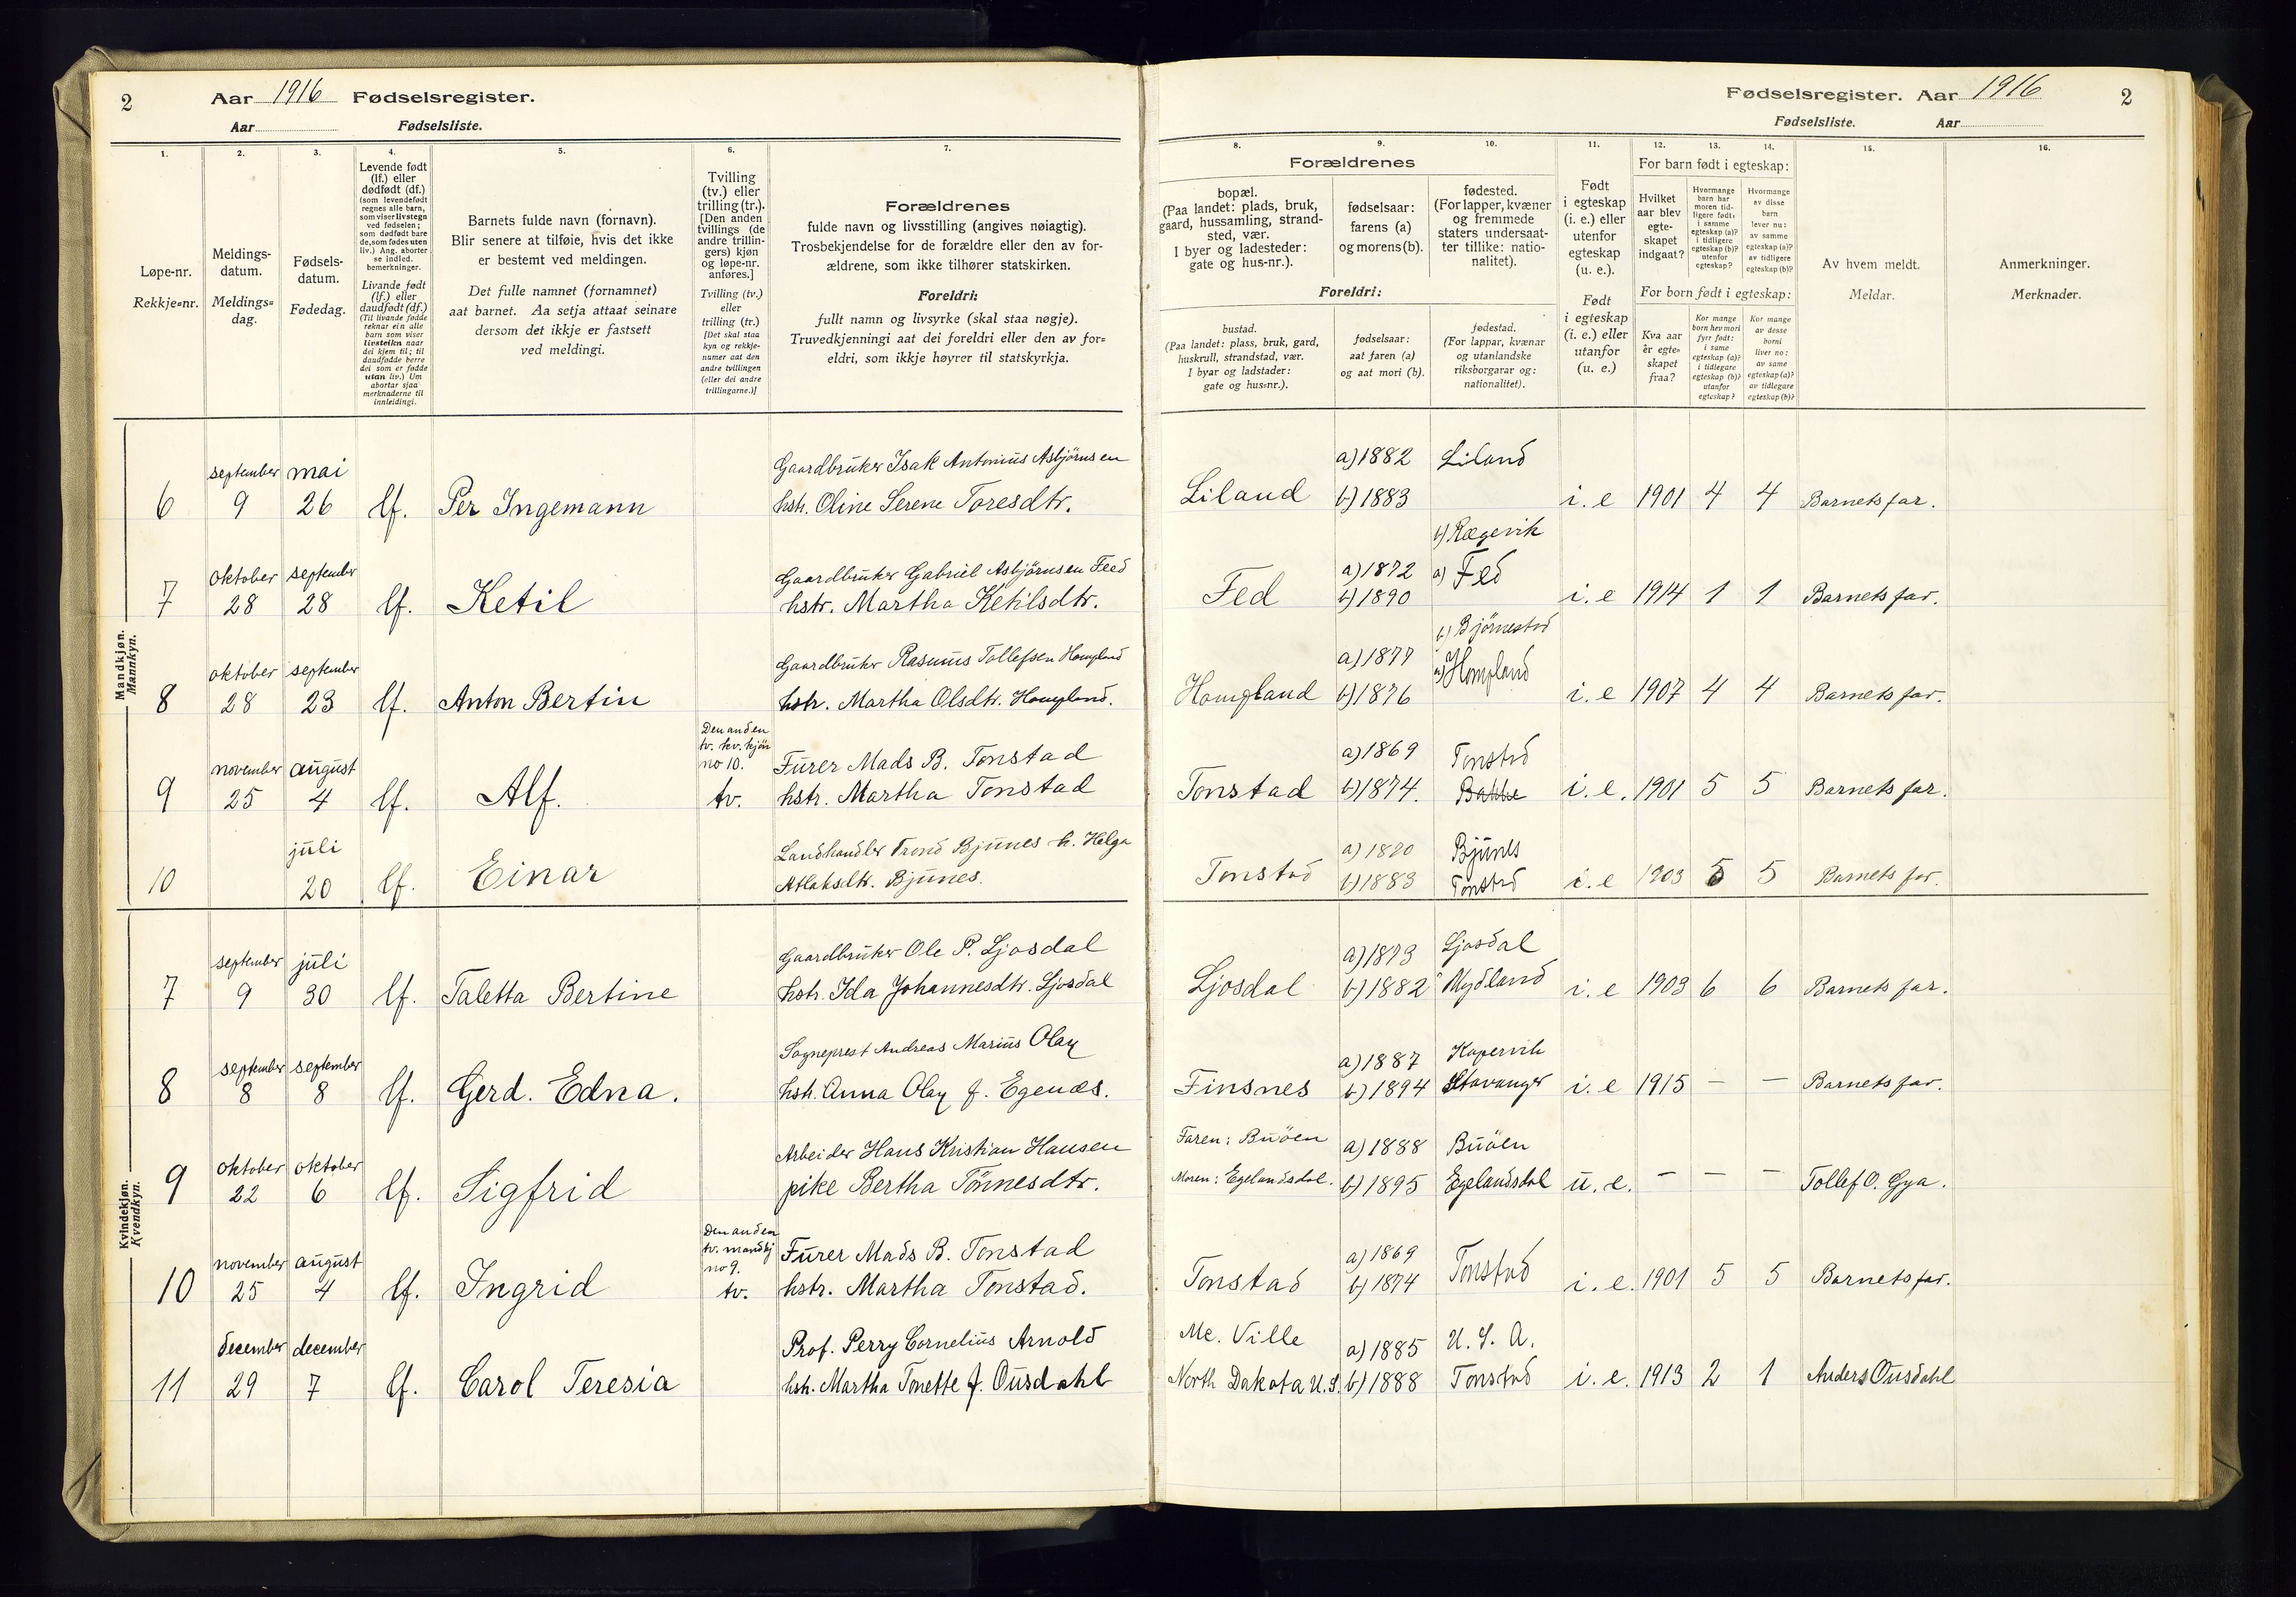 2 Aar 1916 Fødselsregister.
Aar Fødselsliste.
1. 2. 3. 4. 5. 6. 7.
Løpe-nr.
Rekkje=nr.
Meldings-
datum.
Meldings=
dag.
Fødsels-
datum.
Fødedag.
Levende født
(lf.) eller
dødfødt (df.)
(som levendefødt
regnes alle barn,
som viser livstegn
ved fødselen;
som dødfødt bare
de, som fødes uten
liv.) Ang. aborter
se indled.
bemerkninger.
Livande født
(lf.) eller
daudfødt (df.)
(Til livande fødde
reknar ein alle
barn som viser
livsteikn naar
dei kjem til; til
daudfødde berre
dei som er fødde
utan liv.) Um
abortar sjaa
merknaderne til
innleidingi.
Barnets fulde navn (fornavn).
Blir senere at tilføie, hvis det ikke
er bestemt ved meldingen.
Det fulle namnet (fornamnet)
aat barnet. Aa setja attaat seinare
dersom det ikkje er fastsett
ved meldingi.
Tvilling
(tv.) eller
trilling (tr.).
[Den anden
tvillings (de
andre trillin-
gers) kjøn
og løpe-nr.
anføres.]
Tvilling (tv.)
eller
trilling (tr.)
[Det skal staa
kyn og rekkje-
numer aat den
andre tvillingen
(eller dei andre
trillingarne.)]
Forældrenes
fulde navn og livsstilling (angives nøiagtig).
Trosbekjendelse for de forældre eller den av for-
ældrene, som ikke tilhører statskirken.
Foreldri:
fullt namn og livsyrke (skal staa nøgje).
Truvedkjenningi aat dei foreldri eller den av for=
eldri, som ikkje høyrer til statskyrkja.
Mandkjøn.
Mannkyn.
september mai Gaardbruker Isak Antonius Asbjörnsen
6 9 26 lf. Per Ingemann hstr. Oline Serene Toresdtr.
oktober september Gaardbruker Gabriel Asbjörnsen Feed
7 28 28 lf. Ketil hstr. Martha Ketilsdtr.
oktober september Gaardbruker Rasmus Tollefsen Hompland
8 28 23 lf. Anton Bertin hstr. Martha Olsdtr. Hompland.
Den anden
tv. kv. kjön
no 10.
november august Furer Mads B. Tonstad
9 25 4 lf. Alf. tv. hstr. Martha Tonstad
juli Landhandler Trond Bjunes h. Helga
10 20 lf. Einar Atlaksdtr. Bjunes.
Kvindekjøn.
Kvendkyn.
september juli Gaardbruker Ole P. Ljosdal
7 9 30 lf. Taletta Bertine hstr. Ida Johannesdtr. Ljosdal
september september Sogneprest Andreas Marius Olay
8 8 8 lf. Gerd. Edna. hstr. Anna Olay f. Egenæs.
oktober oktober Arbeider Hans Kristian Hansen
9 22 6 lf. Sigfrid pike Bertha Tönnesdtr.
Den anden
tv. mandkj
no 9.
november august Furer Mads B. Tonstad
10 25 4 lf. Ingrid tv. hstr. Martha Tonstad.
december december Prof. Perry Cornelius Arnold
11 29 7 lf. Carol Teresia hstr. Martha Tonette f. Ousdahl
Fødselsregister. Aar 1916 2
Fødselsliste. Aar
8. 9. 10. 11. 12. 13. 14. 15. 16.
Forældrenes
bopæl.
(Paa landet: plads, bruk,
gaard, hussamling, strand-
sted, vær.
I byer og ladesteder:
gate og hus-nr.).
fødselsaar:
farens (a)
og morens (b).
fødested.
(For lapper, kvæner
og fremmede
staters undersaat-
ter tillike: natio-
nalitet).
Foreldri:
bustad.
(Paa landet: plass, bruk, gard,
huskrull, strandstad, vær.
I byar og ladstader:
gate og hus=nr.).
fødselsaar:
aat faren (a)
og aat mori (b).
fødestad.
(For lappar, kvænar
og utanlandske
riksborgarar og:
nationalitet).
Født
i egteskap
(i. e.) eller
utenfor
egteskap
(u. e.).
Født
i egteskap
(i. e.) eller
utanfor
(u. e.)
For barn født i egteskap:
Hvilket
aar blev
egte-
skapet
indgaat?
Hvormange
barn har
moren tid-
ligere født:
i samme
egteskap (a)?
i tidligere
egteskap (b)?
utenfor
egteskap?
Hvormange
av disse
barn
lever nu:
av samme
egteskap (a)?
av tidligere
egteskap (b)?
For born født i egteskap:
Kva aar
er egte=
skapet
fraa?
Kor mange
born hev mori
fyrr født:
i same
egteskap (a)?
i tidlegare
egteskap (b)?
utanfor
egteskap?
Kor mange
av desse
borni
liver no:
av same
egteskap (a)?
av tidlegare
egteskap (b)?
Av hvem meldt.
Meldar.
Anmerkninger.
Merknader.
a) 1882 Liland
Liland b) 1883 i. e 1901 4 4 Barnets far.
b) Rægevik
a) 1872 a) Fed
Fed b) 1890 i. e 1914 1 1 Barnets far.
b) Björnestad
a) 1877 a) Hompland
Hompland b) 1876 i. e 1907 4 4 Barnets far.
a) 1869 Tonstad
Tonstad b) 1874. Bakke i. e. 1901 5 5 Barnets far.
a) 1880 Bjunes
Tonstad b) 1883 Tonstad i. e 1903 5 5 Barnets far.
a) 1873 Ljosdal
Ljosdal b) 1882 Mydland i. e 1903 6 6 Barnets far.
a) 1887 Kopervik
Finsnes b) 1894 Stavanger i. e 1915 — — Barnets far.
Faren: Buöen a) 1888 Buöen
Moren: Egelandsdal. b) 1895 Egelandsdal u. e. — — — Tollef O. Gya.
a) 1869
Tonstad b) 1874 Tonstad i. e. 1901 5 5 Barnets far.
Mc. Ville a) 1885 U. S. A.
North Dakota U.S. b) 1888 Tonstad i. e. 1913 2 1 Anders Ousdahl